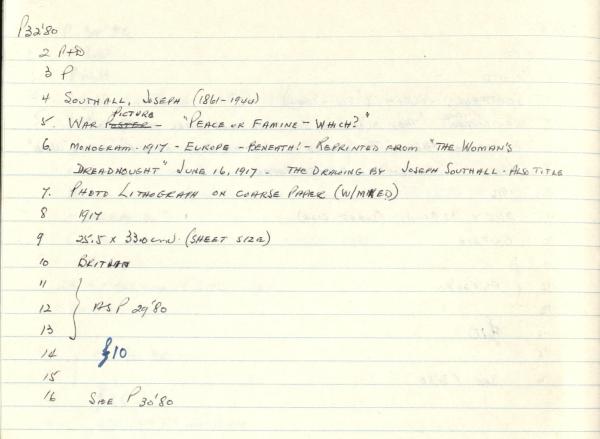 P32'80
2 P+D
3 P
4 SOUTHALL, JOSEPH (1861-1944)
PICTURE
5. WAR POSTER - "PEACE OR FAMINE - WHICH?"
6. MONOGRAM - 1917 - EUROPE - BENEATH! - REPRINTED FROM "THE WOMAN'S
DREADNOUGHT" JUNE 16, 1917 - THE DRAWING BY JOSEPH SOUTHALL - ALSO TITLE
7. PHOTO LITHOGRAPH ON COARSE PAPER (W/MKED)
8 1917
9 25.5 x 33.0 cm. (SHEET SIZE)
10 BRITAIN
11
12 AS P 29'80
13
14 £10
15
16 P 30'80